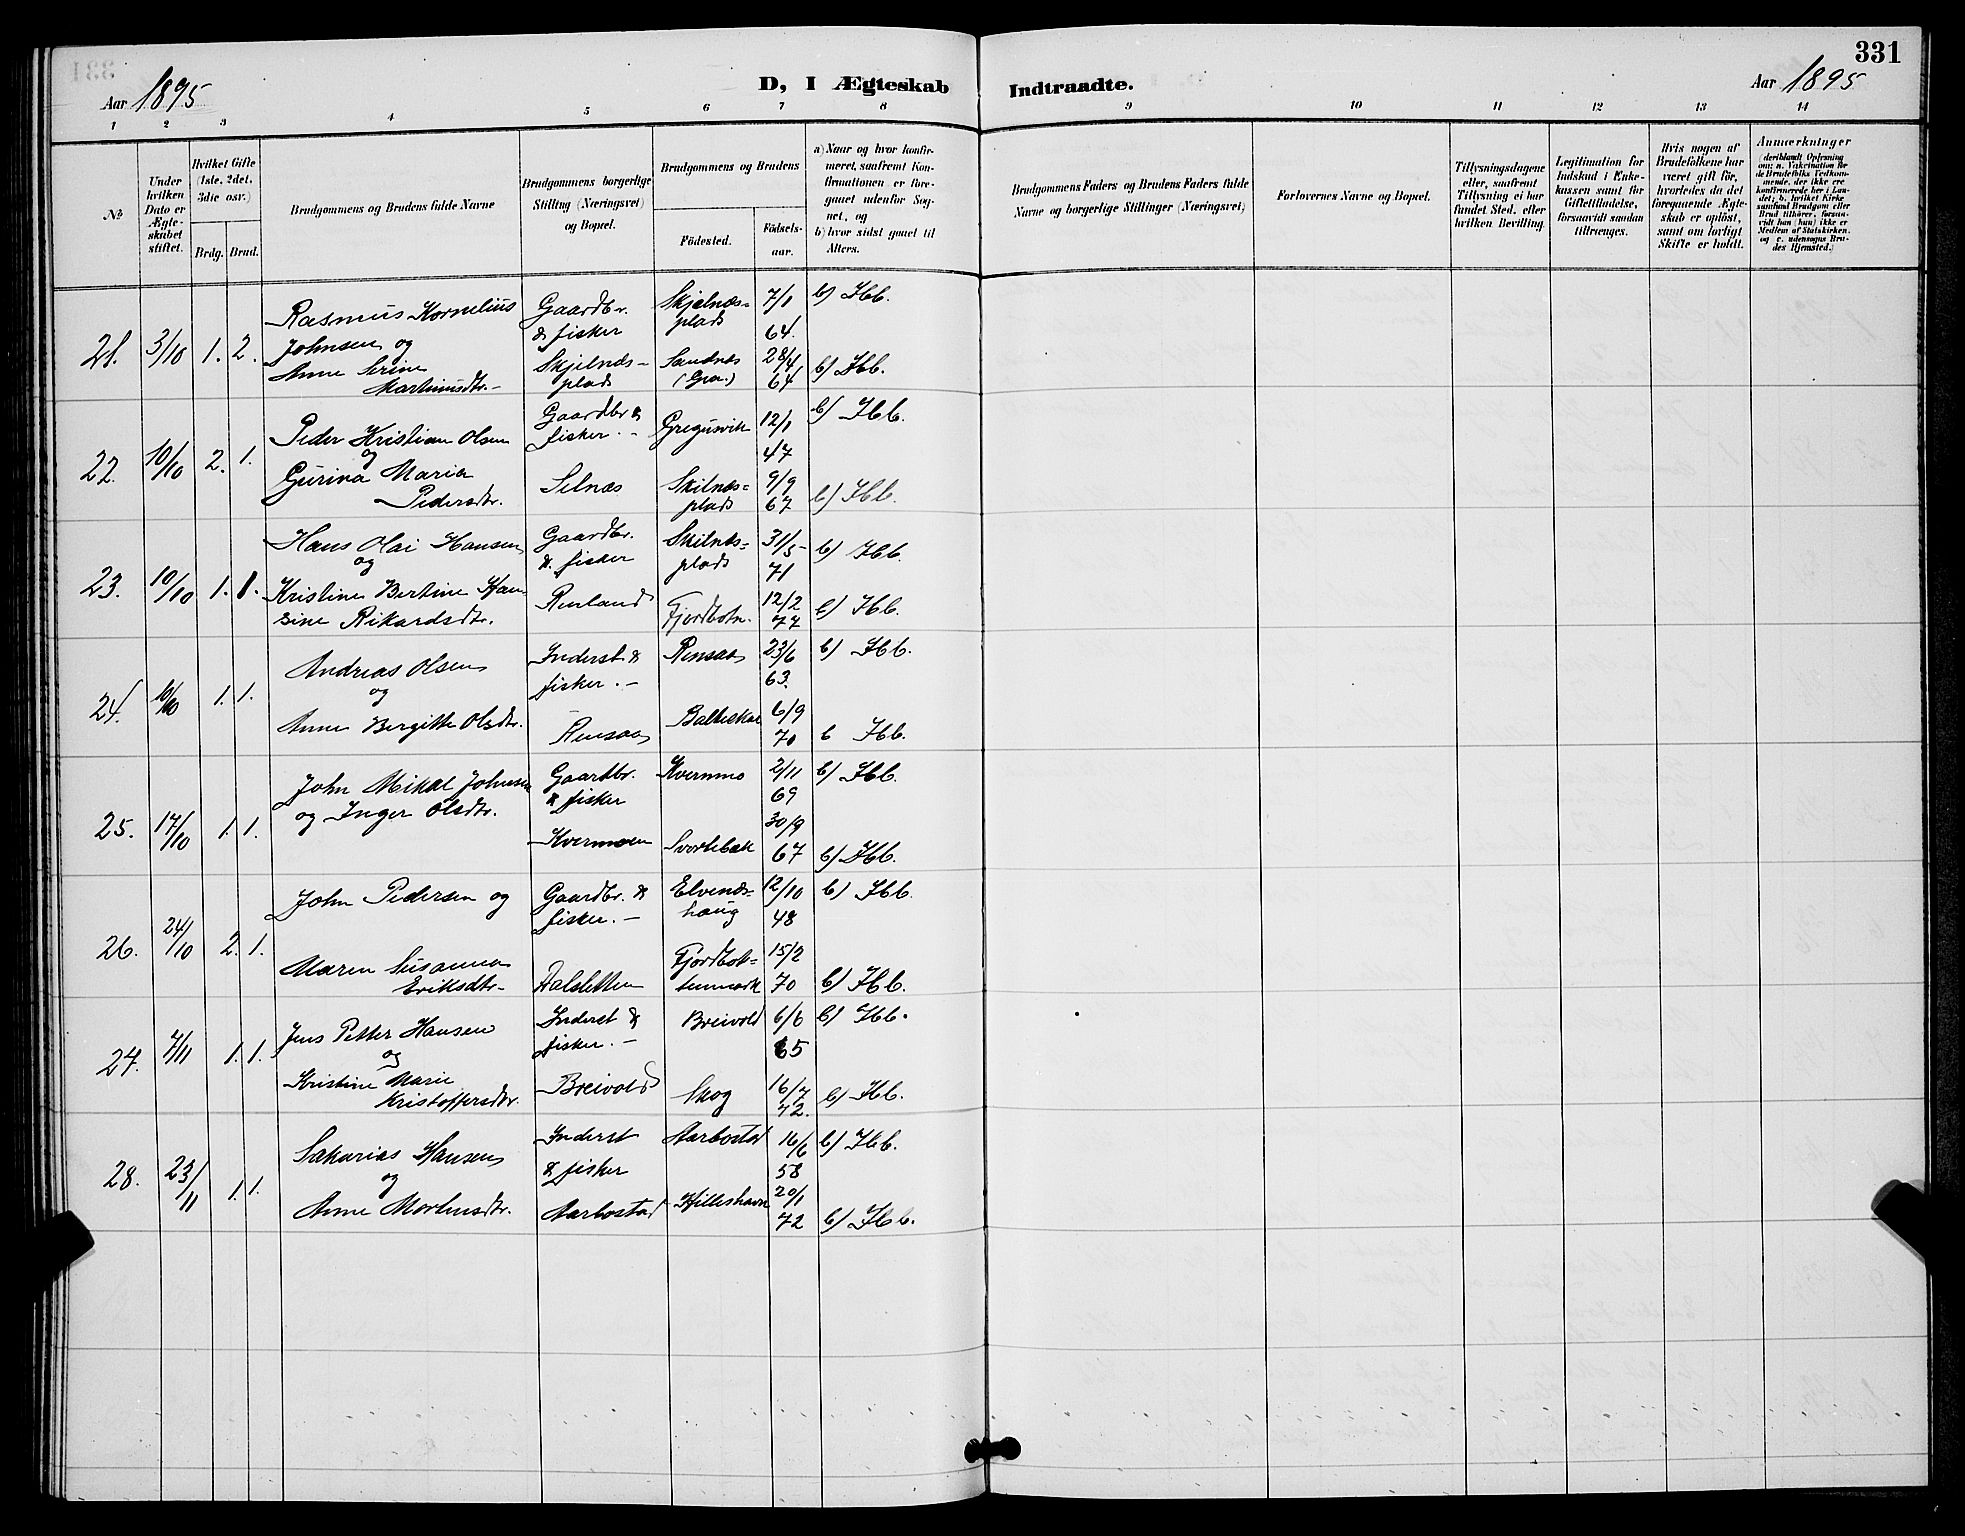 331
Aar 1895
D, I Ægteskab Indtraadte.
Aar 1895
1 2 3 4 5 6 7 8 9 10 11 12 13 14
№
Under hvilken Dato er Ægteskabet stiftet.
Hvilket Gifte (1ste, 2det, 3die osv.)
Brdg. Brud.
Brudgommens og Brudens fulde Navne
Brudgommens borgerlige Stilling (Næringsvei) og Bopæl.
Brudgommens og Brudens
Fødested. Fødselsaar.
a) Naar og hvor konfirmeret, saafremt Konfirmationen er foregaaet udenfor Sognet, og
b) hvor sidst gaaet til Alters.
Brudgommens Faders og Brudens Faders fulde Navne og borgerlige Stillinger (Næringsvei)
Forlovernes Navne og Bopæl.
Tillysningsdagene eller, saafremt Tillysning ei har fundet Sted, efter hvilken Bevilling.
Legitimation for Indskud i Enkekassen samt for Giftetilladelse, forsaavidt saadan tiltrænges.
Hvis nogen af Brudefolkene har været gift før, hvorledes da det foregaaende Ægteskab er opløst, samt om lovligt Skifte er holdt.
Anmærkninger
(deriblandt Oplysning om: a. Vakcination for de Brudefolks Vedkommende, der ikke ere konfirmerede her i Landet; b. hvilket Kirkesamfund Brudgom eller Brud tilhører, forsaavidt han (hun) ikke er Medlem af Statskirken, og c. udensogns Brudes Hjemsted.)
21. 3/10 1. 2. Rasmus Kornelius Johnsen og Gaardbr. & fisker Skjelnæsplads 7/1 64. b) Ibb.
Anne Serine Martinusdtr. Skjelnæsplads Sandnes (Gra.) 28/4 64 b) Ibb.
22. 10/10 2. 1. Peder Kristian Olsen og Gaardbr & fisker. Gregusvik 12/1 47 b) Ibb.
Gurina Maria Pedersdtr. Selnæs Skilnæsplads 9/9 67 b) Ibb.
23. 10/10 1. 1. Hans Olai Hansen og Gaardbr. & fisker Skilnæsplads 31/5 71 b) Ibb.
Kristine Bertine Hansine Rikardsdtr. Renland Fjordbotn. 12/2 77 b) Ibb.
24. 10/10 1. 1. Andreas Olsen og Inderst & fisker. Rensaa 23/6 63. b) Ibb.
Anne Bergitte Olsdtr. Rensaa 6/9 70 b Ibb.
25. 17/10 1. 1. John Mikal Johnsen og Inger Olsdtr. Gaardbr. & fisker Kvernmo 2/11 69 b) Ibb.
Kvernmoen Svortebæk 30/9 67 b) Ibb.
26. 24/10 2. 1. John Pedersen og Gaardbr. & fisker. Elvenæshaug 12/10 48 b) Ibb.
Maren Susanna Eriksdtr. Dalsletten Fjordbottenmark 15/2 70 b) Ibb.
27. 7/11 1. 1. Jens Petter Hansen og Inderst & fisker. Breivold 6/6 65 b) Ibb.
Kristine Marie Kristoffersdtr. Breivold Skog 16/7 72. b) Ibb.
28. 23/11 1. 1. Sakarias Hansen og Inderst & fisker Aarbostad 16/6 58 b) Ibb.
Anne Mortensdtr. Aarbostad Hilleshavn 20/1 72 b) Ibb.